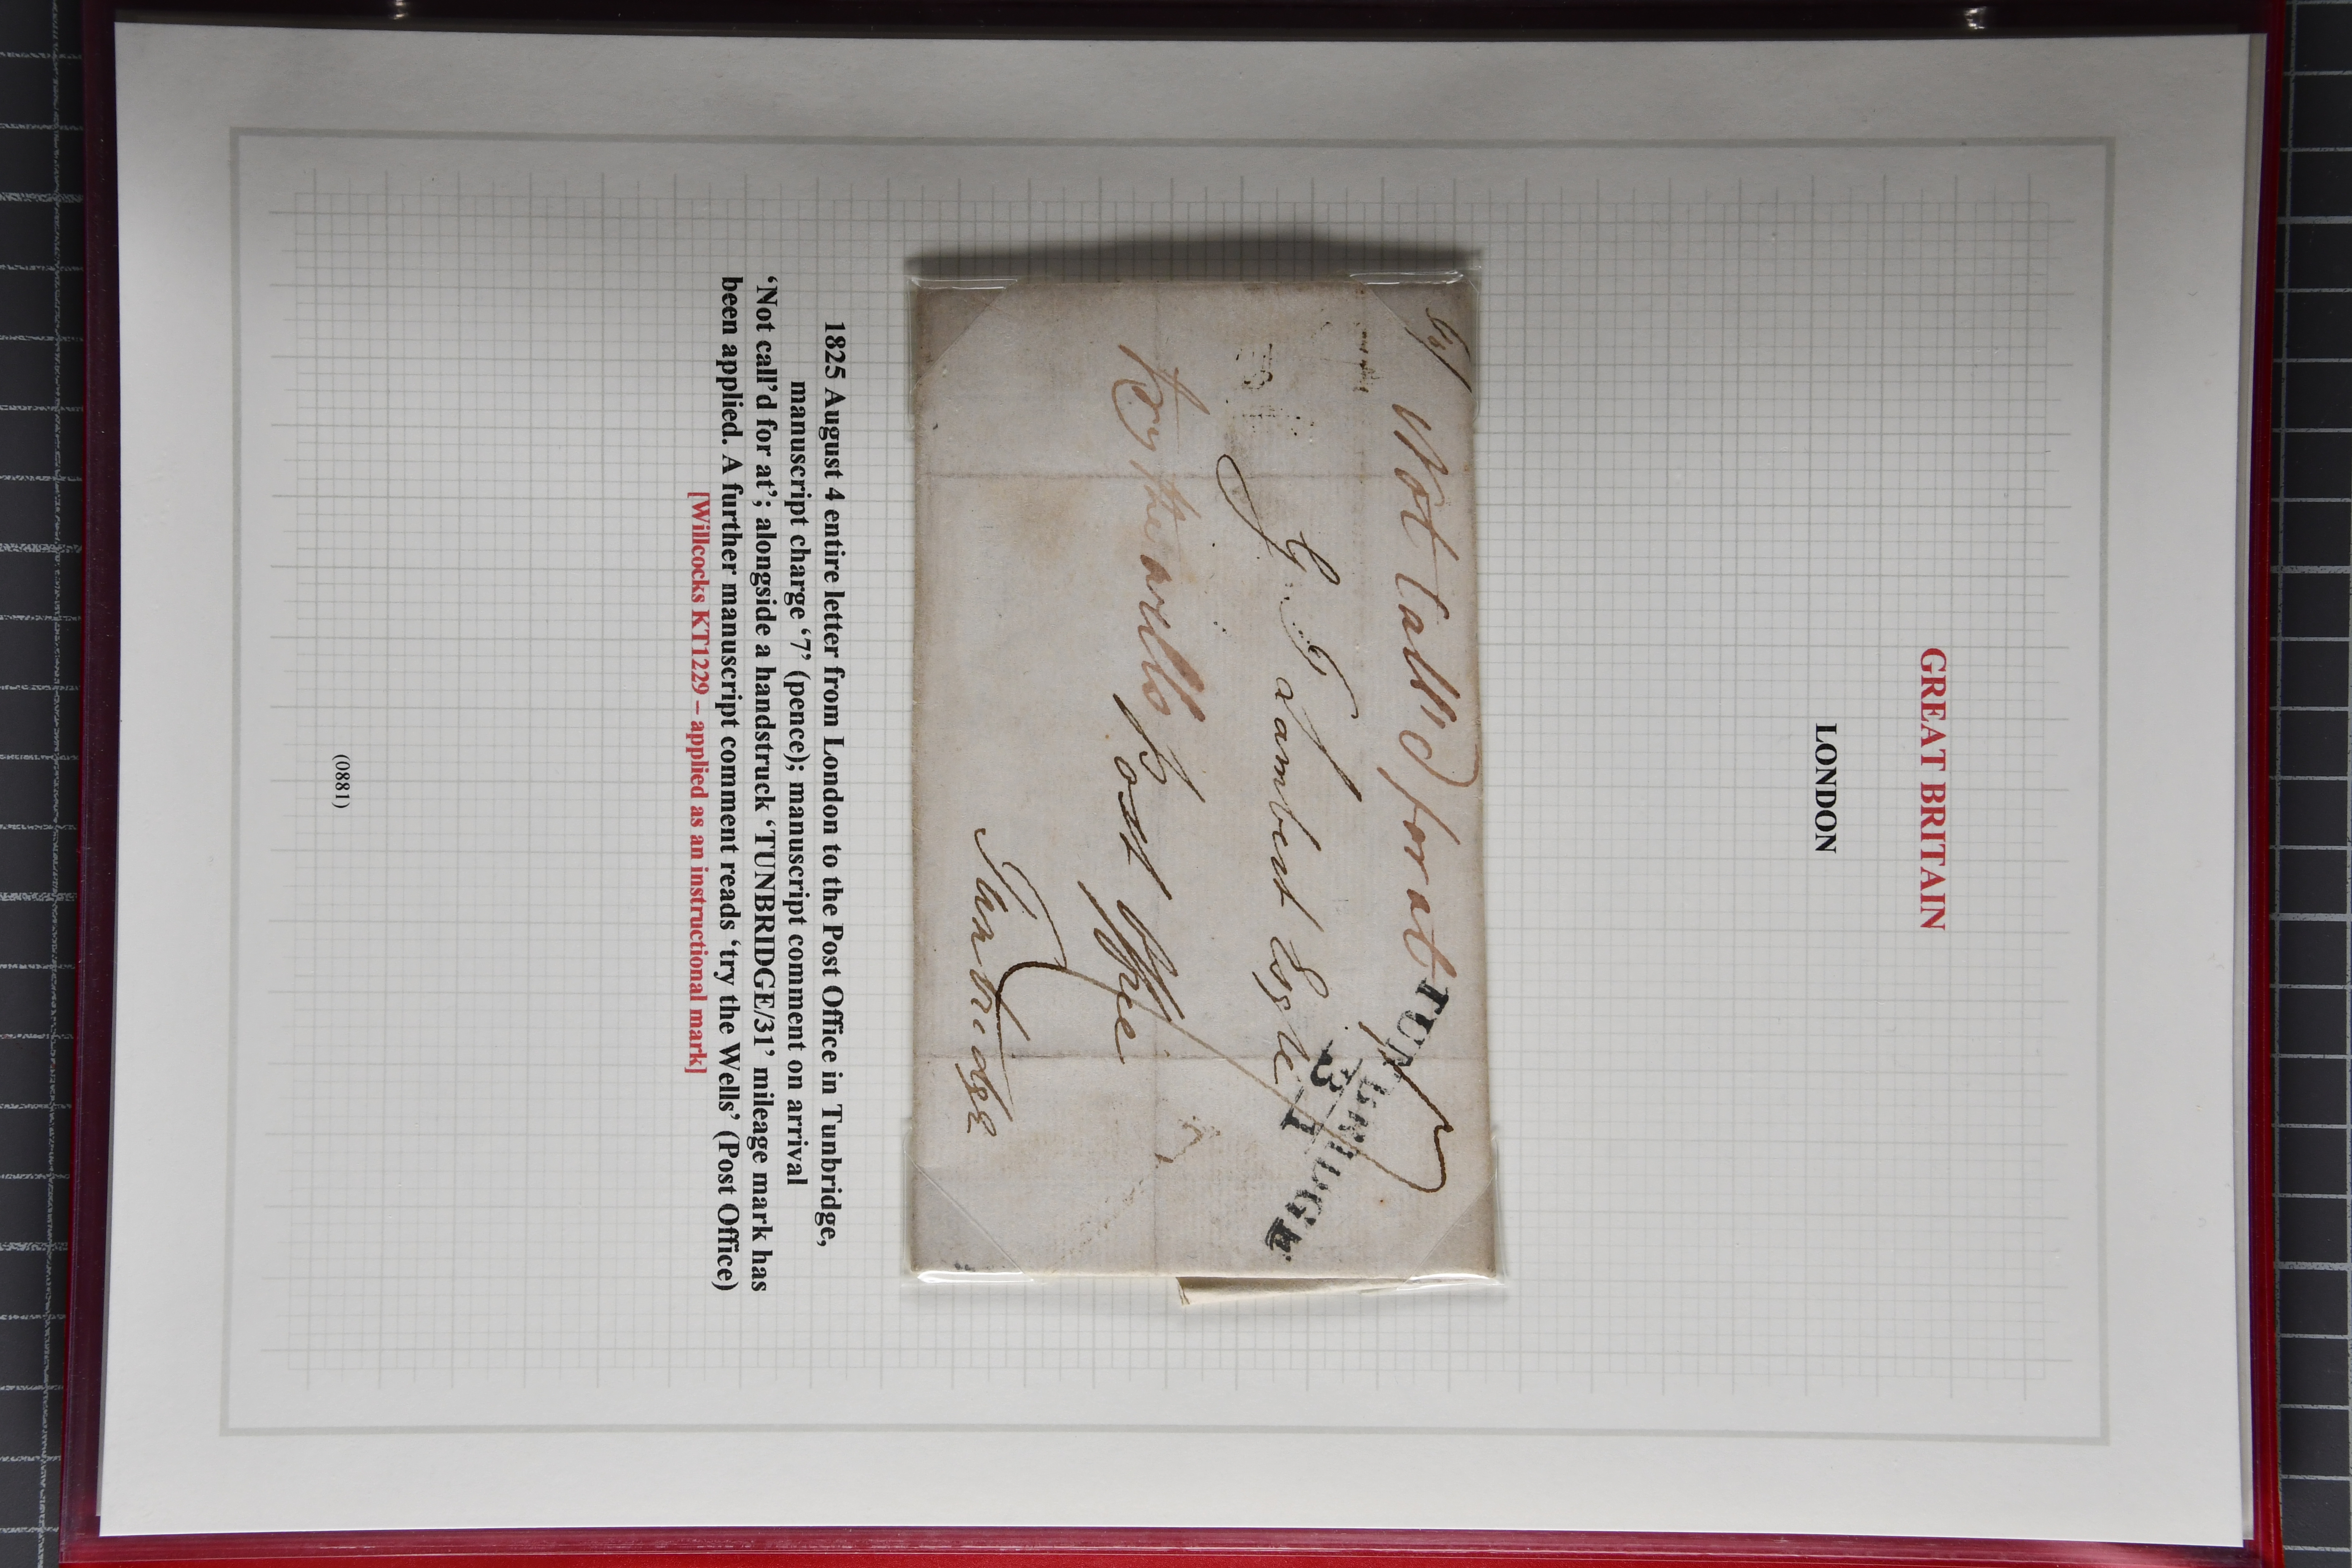 GREAT BRITAIN
LONDON
Not Call'd for at
TUNBRIDGE
31
7
G Lambert Esqre
Try the wells
Post Office
Tunbridge
1825 August 4 entire letter from London to the Post Office in Tunbridge,
manuscript charge ‘7’ (pence); manuscript comment on arrival
‘Not call’d for at’; alongside a handstruck ‘TUNBRIDGE/31’ mileage mark has
been applied. A further manuscript comment reads ‘try the Wells’ (Post Office)
[Willcocks KT1229 – applied as an instructional mark]
(0881)